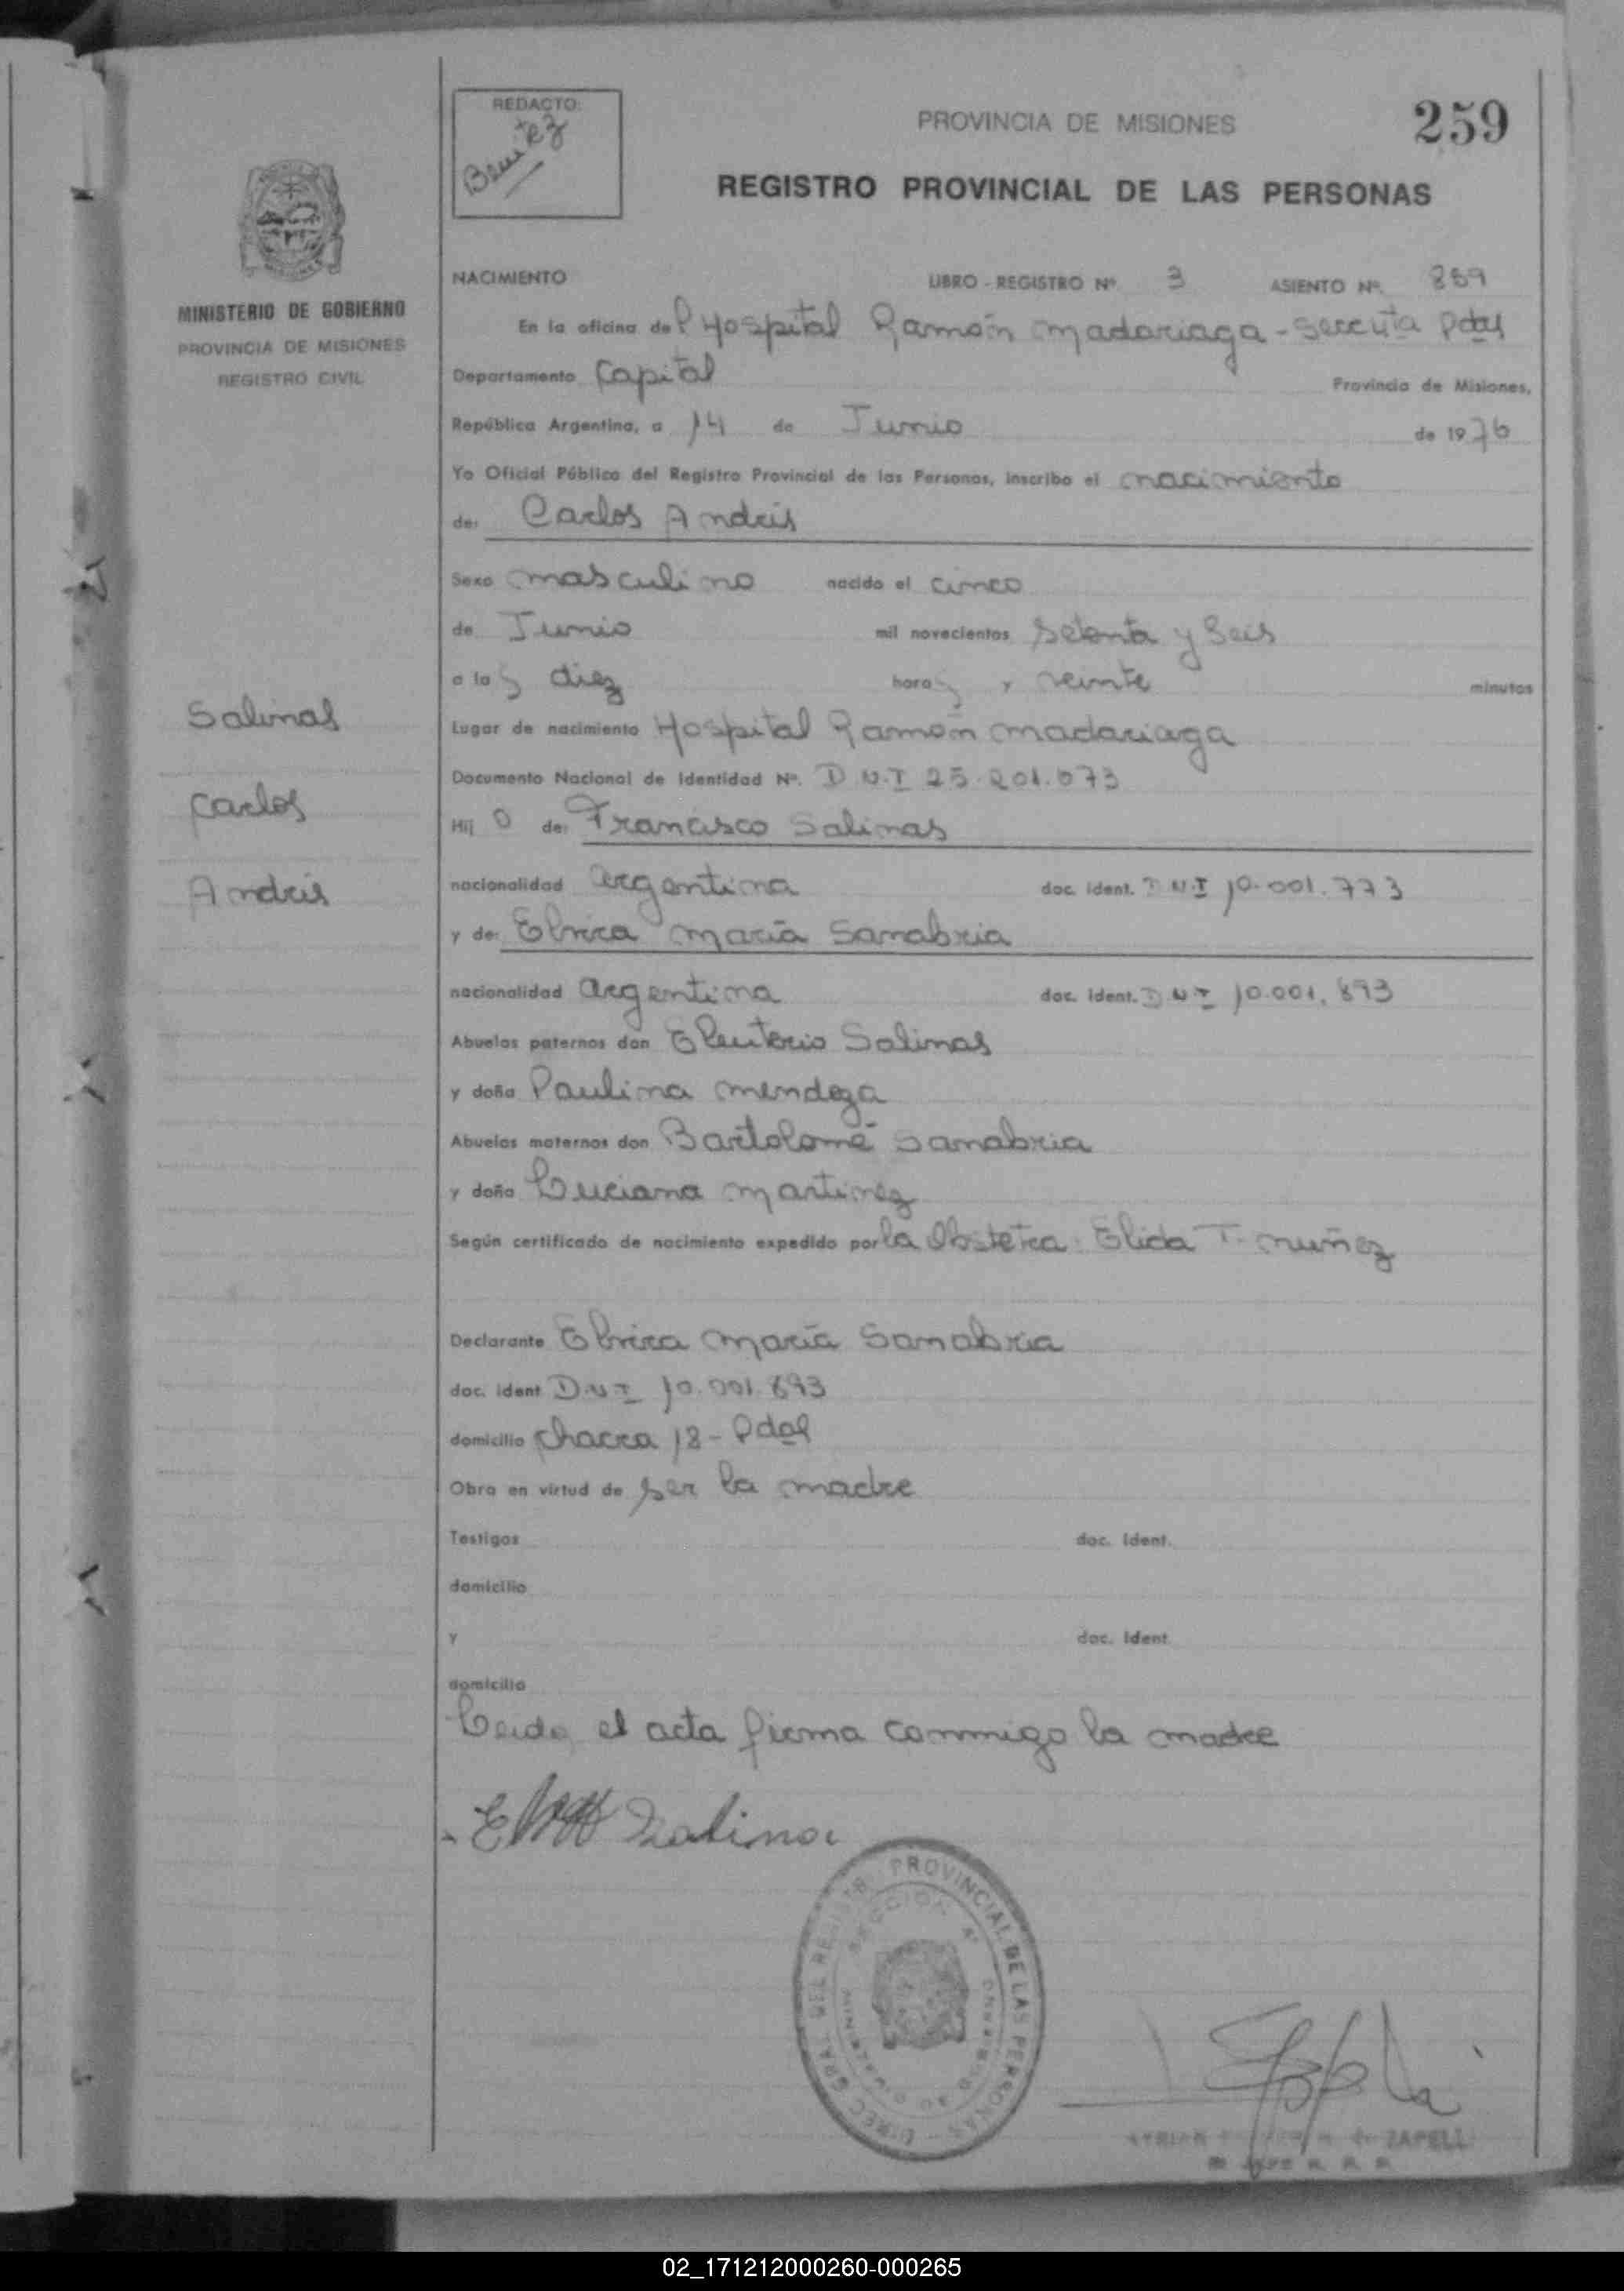 REDACTO:
Benitez
PROVINCIA DE MISIONES
259
REGISTRO PROVINCIAL DE LAS PERSONAS
MINISTERIO DE GOBIERNO
PROVINCIA DE MISIONES
REGISTRO CIVIL
NACIMIENTO LIBRO - REGISTRO Nº 3 ASIENTO Nº. 859
En la oficina del Hospital Ramón Madariaga - Pdas
Departamento Capital Provincia de Misiones,
República Argentina, a 14 de Junio de 1976
Yo Oficial Público del Registro Provincial de las Personas, inscribo el nacimiento
de: Carlos Andrés
Sexo masculino nacido el cinco
de Junio mil novecientos Setenta y Seis
a las diez horas y veinte minutos
Salinas
Carlos
Andrés
Lugar de nacimiento Hospital Ramón Madariaga
Documento Nacional de Identidad Nº. D.N.I 25.201.073
Hijo de: Francisco Salinas
nacionalidad argentina doc. ident. D.N.I 10.001.773
y de: Elvira María Sanabria
nacionalidad argentina doc. ident. D N I 10.001.893
Abuelos paternos don Eleuterio Salinas
y doña Paulina Mendoza
Abuelos maternos don Bartolomé Sanabria
y doña Luciana Martinez
Según certificado de nacimiento expedido por la Obstetra: Elida T. Nuñez
Declarante Elvira María Sanabria
doc. ident D.N.I 10.001.893
domicilio Chacra 18 - Pdas
Obra en virtud de ser la madre
Testigos doc. ident.
domicilio
y doc. ident.
domicilio
Leida el acta firma conmigo la madre
DIREC. GRAL. DEL REGISTRO PROVINCIAL DE LAS PERSONAS
ZAPELLI
02_171212000260-000265